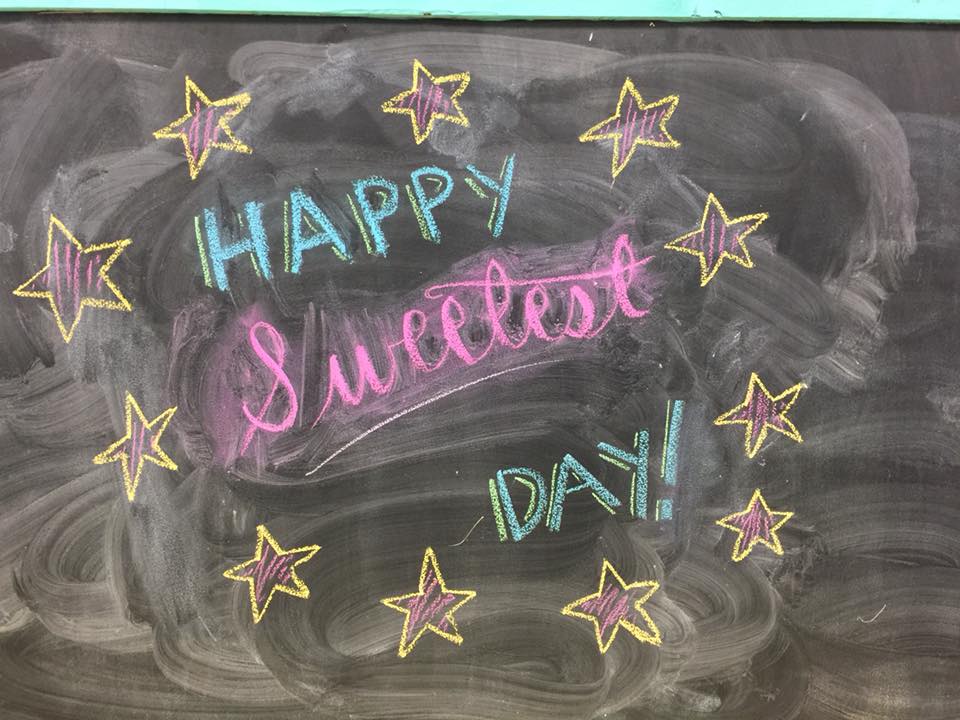 HAPPY
Sweetest
DAY!